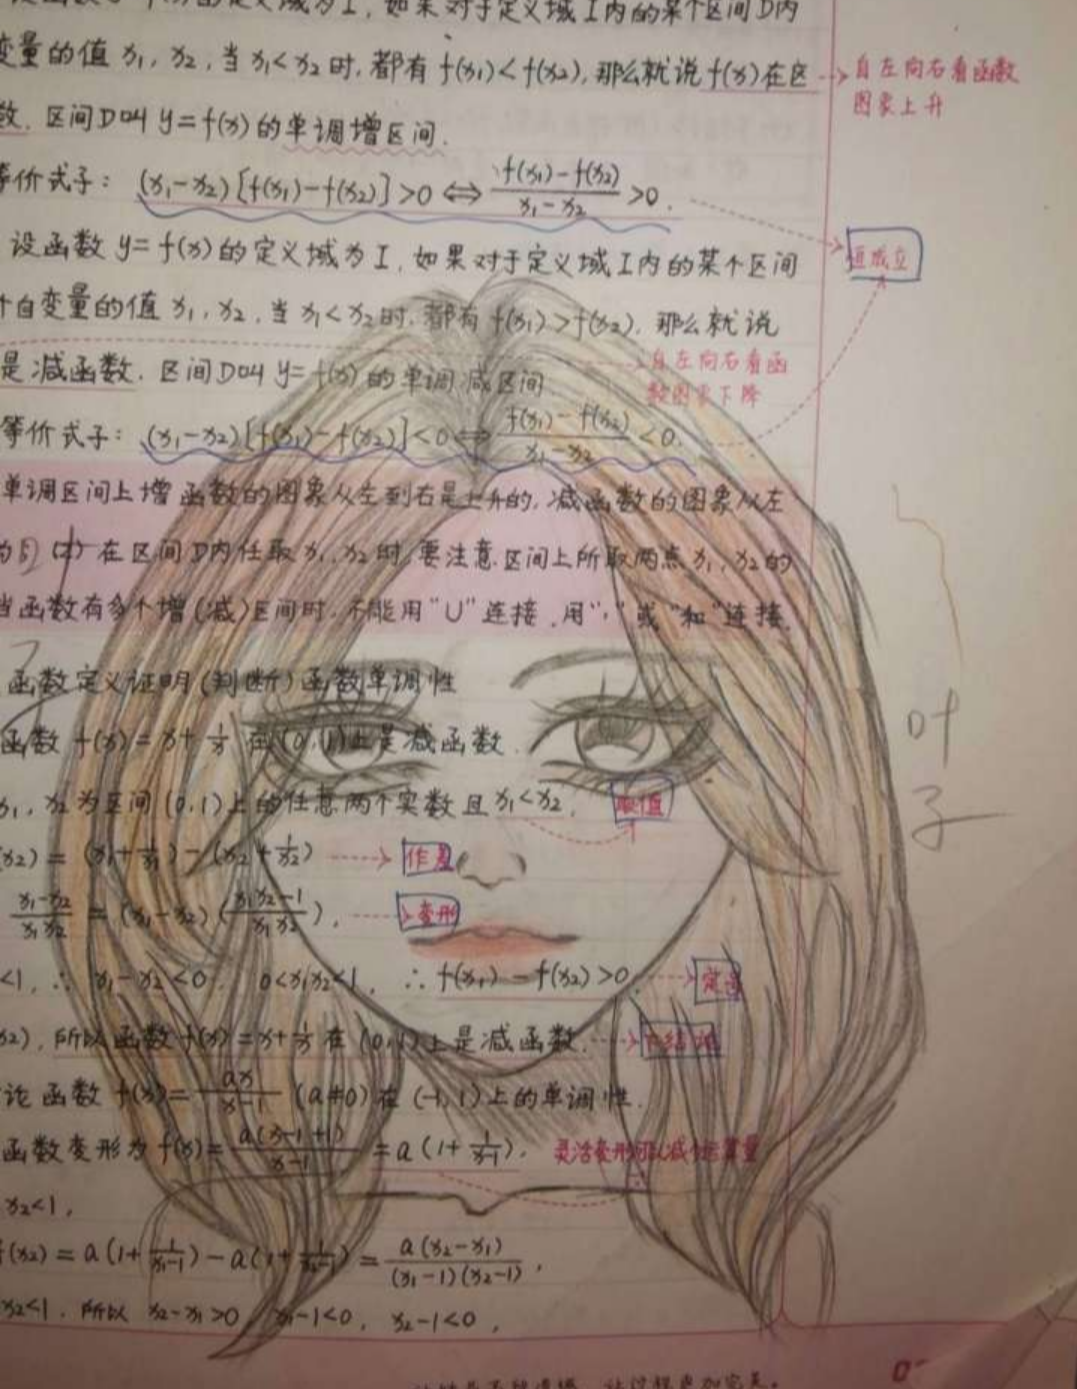 设函数y=f(x)的定义域为I,如果对于定义域I内的某个区间D内
变量的值x₁,x₂,当x₁<x₂时,都有f(x₁)<f(x₂),那么就说f(x)在区
自左向右看函数
图象上升
数.区间D叫y=f(x)的单调增区间.
等价式子:(x₁-x₂)[f(x₁)-f(x₂)]>0⇔\frac{f(x₁)-f(x₂)}{x₁-x₂}>0.
恒成立
设函数y=f(x)的定义域为I,如果对于定义域I内的某个区间
个自变量的值x₁,x₂,当x₁<x₂时,都有f(x₁)>f(x₂),那么就说
是减函数.区间D叫y=f(x)的单调减区间.
自左向右看函
数图象下降
等价式子:(x₁-x₂)[f(x₁)-f(x₂)]<0⇔\frac{f(x₁)-f(x₂)}{x₁-x₂}<0.
单调区间上增函数的图象从左到右是上升的,减函数的图象从左
在区间D内任取x₁,x₂时,要注意区间上所取两点x₁,x₂的
当函数有多个增(减)区间时,不能用"U"连接,用","或"和"连接.
函数定义证明(判断)函数单调性
函数f(x)=x+\frac{1}{x}在(0,1)上是减函数.
叶
子
x₁,x₂为区间(0,1)上的任意两个实数且x₁<x₂, 取值
x₂)=(x₁+\frac{1}{x₁})-(x₂+\frac{1}{x₂}) 作差
\frac{x₁-x₂}{x₁x₂}=(x₁-x₂)(\frac{x₁x₂-1}{x₁x₂}). 变形
<1,∴x₁-x₂<0, 0<x₁x₂<1, ∴f(x₁)-f(x₂)>0, 定号
x₂),所以函数f(x)=x+\frac{1}{x}在(0,1)上是减函数. 下结论
论函数f(x)=\frac{ax}{x-1}(a≠0)在(-1,1)上的单调性.
函数变形为f(x)=\frac{a(x-1+1)}{x-1}=a(1+\frac{1}{x-1}). 灵活变形可以减小运算量
x₂<1,
f(x₂)=a(1+\frac{1}{x₁-1})-a(1+\frac{1}{x₂-1})=\frac{a(x₂-x₁)}{(x₁-1)(x₂-1)},
x₂<1.所以x₂-x₁>0, x₁-1<0, x₂-1<0,